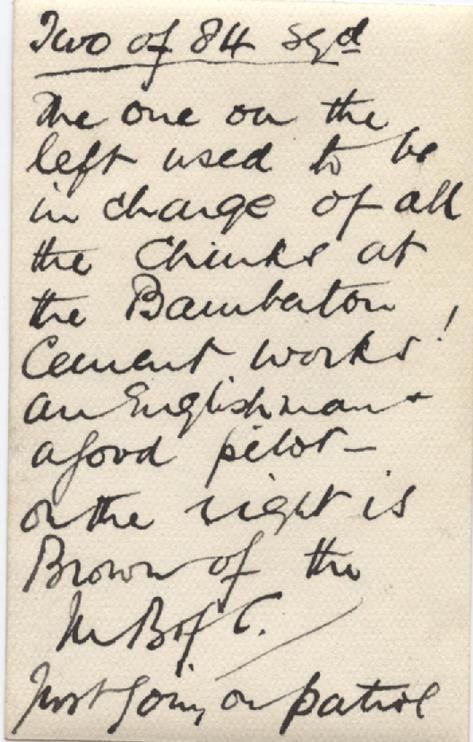 Two of 84 Sqd
The one on the
left used to be
in charge of all
the Chinks at
the Bamberton
Cement works!
an Englishman +
a good pilot –
on the right is
Brown of the
M B of C.
Just going on patrol